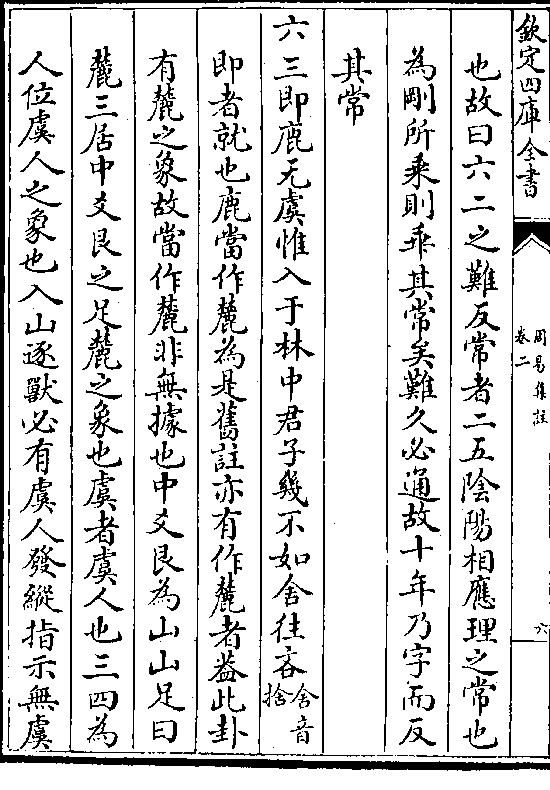 欽定四庫全書
周易集註
卷二
六
也故曰六二之難反常者二五陰陽相應理之常也
為剛所乘則乖其常矣難久必通故十年乃字而反
其常
六三即鹿无虞惟入于林中君子幾不如舍往吝舍音
捨
即者就也鹿當作麓為是舊註亦有作麓者蓋此卦
有麓之象故當作麓非無據也中爻艮為山山足曰
麓三居中爻艮之足麓之象也虞者虞人也三四為
人位虞人之象也入山逐獸必有虞人發縱指示無虞